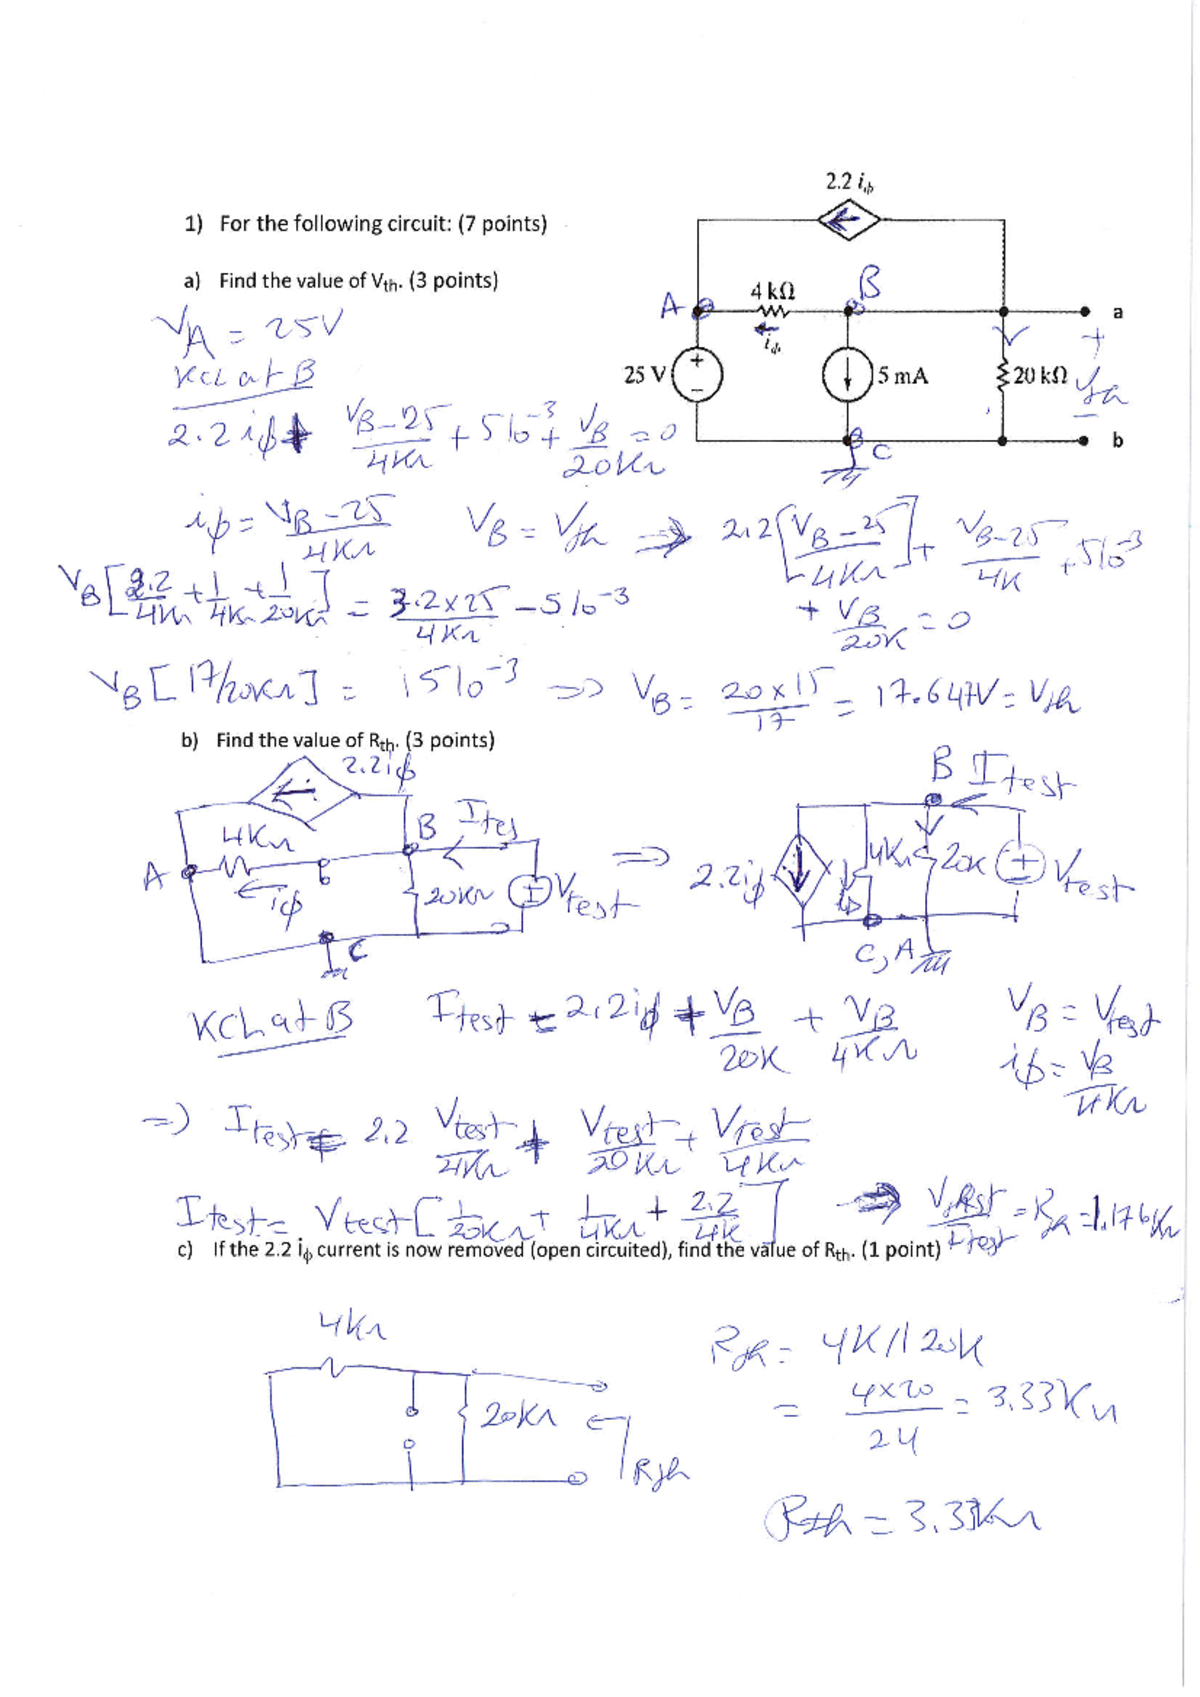 2.2 iϕ
1) For the following circuit: (7 points)
a) Find the value of Vth. (3 points)
4 kΩ
B
A
a
iϕ
+
25 V
+
−
5 mA
20 kΩ
Vth
−
b
C
VA = 25V
KCL at B
2.2 iϕ + (VB-25)/4KΩ + 5 10^-3 + VB/20KΩ = 0
iϕ = (VB-25)/4KΩ   VB = Vth ⇒ 2.2[(VB-25)/4KΩ] + (VB-25)/4K + 5 10^-3
+ VB/20K = 0
VB[2.2/4KΩ + 1/4KΩ + 1/20KΩ] = (3.2x25)/4KΩ - 5 10^-3
VB[17/20KΩ] = 15 10^-3 ⇒ VB = (20x15)/17 = 17.647V = Vth
b) Find the value of Rth. (3 points)
2.2iϕ
4KΩ
B Ites
A
iϕ
20KΩ
+
Vtest
C
⇒
B Itest
2.2iϕ
4KΩ
20K
+
Vtest
iϕ
C, A
KCL at B   Itest = 2.2iϕ + VB/20K + VB/4KΩ   VB = Vtest
iϕ = VB/4KΩ
⇒ Itest = 2.2 Vtest/4KΩ + Vtest/20KΩ + Vtest/4KΩ
Itest = Vtest[1/20KΩ + 1/4KΩ + 2.2/4K] ⇒ Vtest/Itest = Rth = 1.176KΩ
c) If the 2.2 iϕ current is now removed (open circuited), find the value of Rth. (1 point)
4KΩ
20KΩ
Rth
Rth = 4K//20K
= (4x20)/24 = 3.33KΩ
Rth = 3.33KΩ